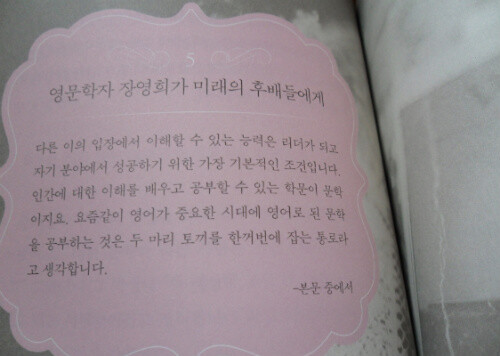 5
영문학자 장영희가 미래의 후배들에게
다른 이의 입장에서 이해할 수 있는 능력은 리더가 되고
자기 분야에서 성공하기 위한 가장 기본적인 조건입니다.
인간에 대한 이해를 배우고 공부할 수 있는 학문이 문학
이지요. 요즘같이 영어가 중요한 시대에 영어로 된 문학
을 공부하는 것은 두 마리 토끼를 한꺼번에 잡는 통로라
고 생각합니다.
~본문 중에서